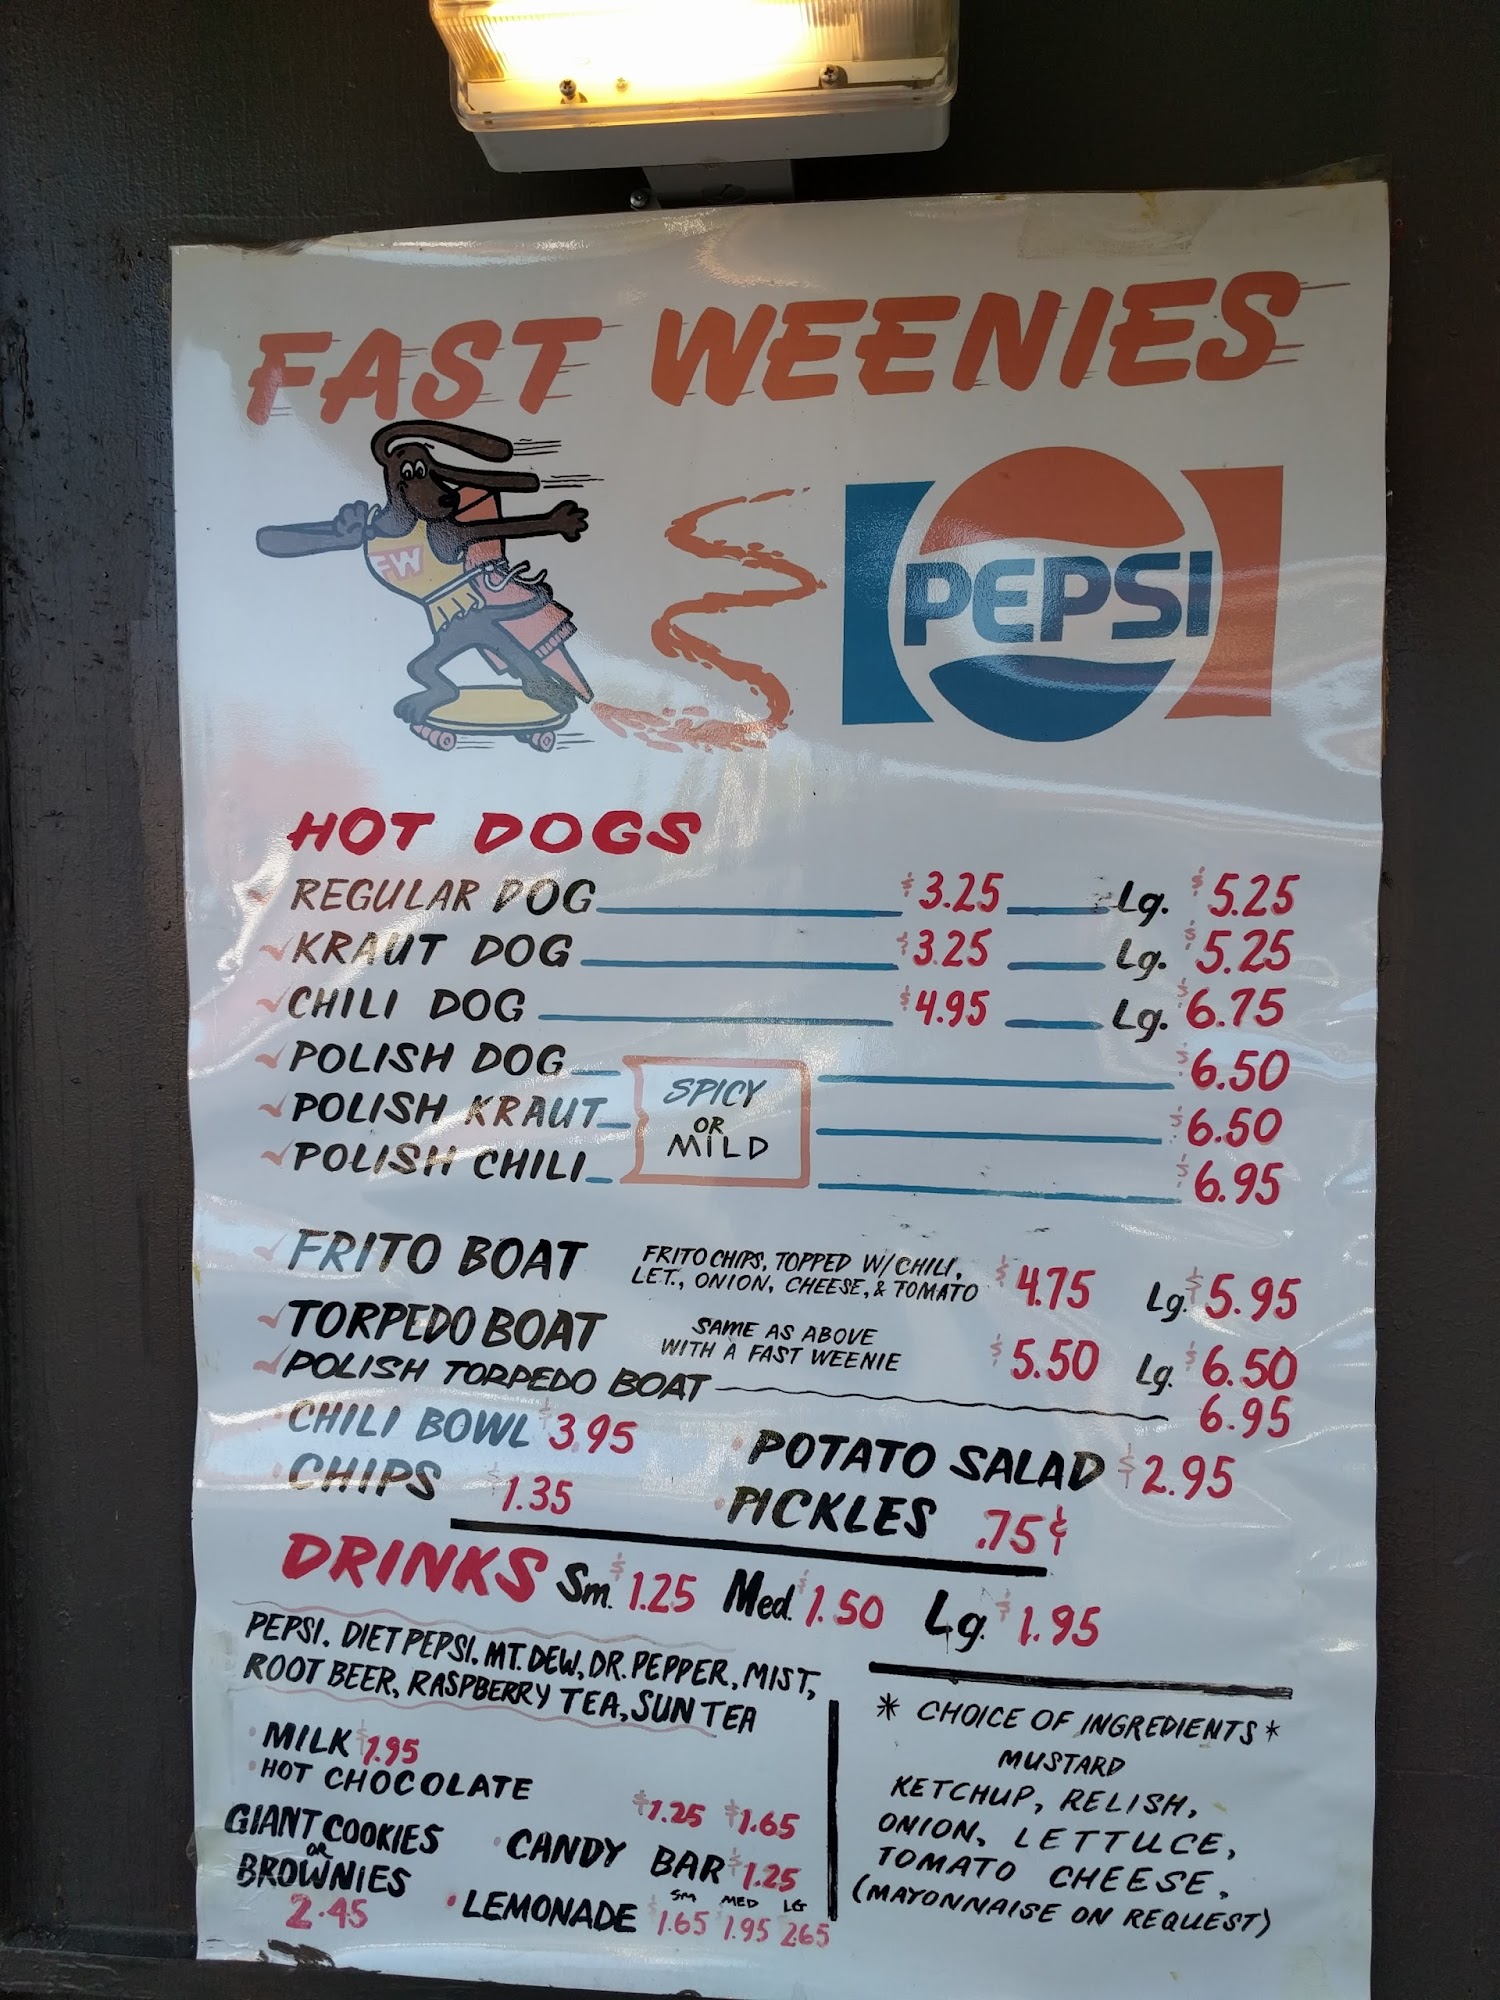 FAST WEENIES
FW
PEPSI
HOT DOGS
REGULAR DOG $3.25 Lg. $5.25
KRAUT DOG $3.25 Lg. $5.25
CHILI DOG $4.95 Lg. $6.75
POLISH DOG $6.50
POLISH KRAUT $6.50
POLISH CHILI $6.95
SPICY
OR
MILD
FRITO BOAT FRITO CHIPS, TOPPED W/CHILI, LET., ONION, CHEESE, & TOMATO $4.75 Lg. $5.95
TORPEDO BOAT SAME AS ABOVE WITH A FAST WEENIE $5.50 Lg. $6.50
POLISH TORPEDO BOAT 6.95
CHILI BOWL $3.95 POTATO SALAD $2.95
CHIPS $1.35 PICKLES .75¢
DRINKS Sm. $1.25 Med. $1.50 Lg. $1.95
PEPSI, DIET PEPSI, MT. DEW, DR. PEPPER, MIST,
ROOT BEER, RASPBERRY TEA, SUN TEA
MILK $1.95
HOT CHOCOLATE $1.25 $1.65
GIANT COOKIES
OR
BROWNIES
2.45
CANDY BAR $1.25
SM MED LG
LEMONADE $1.65 $1.95 2.65
* CHOICE OF INGREDIENTS *
MUSTARD
KETCHUP, RELISH,
ONION, LETTUCE,
TOMATO CHEESE,
(MAYONNAISE ON REQUEST)